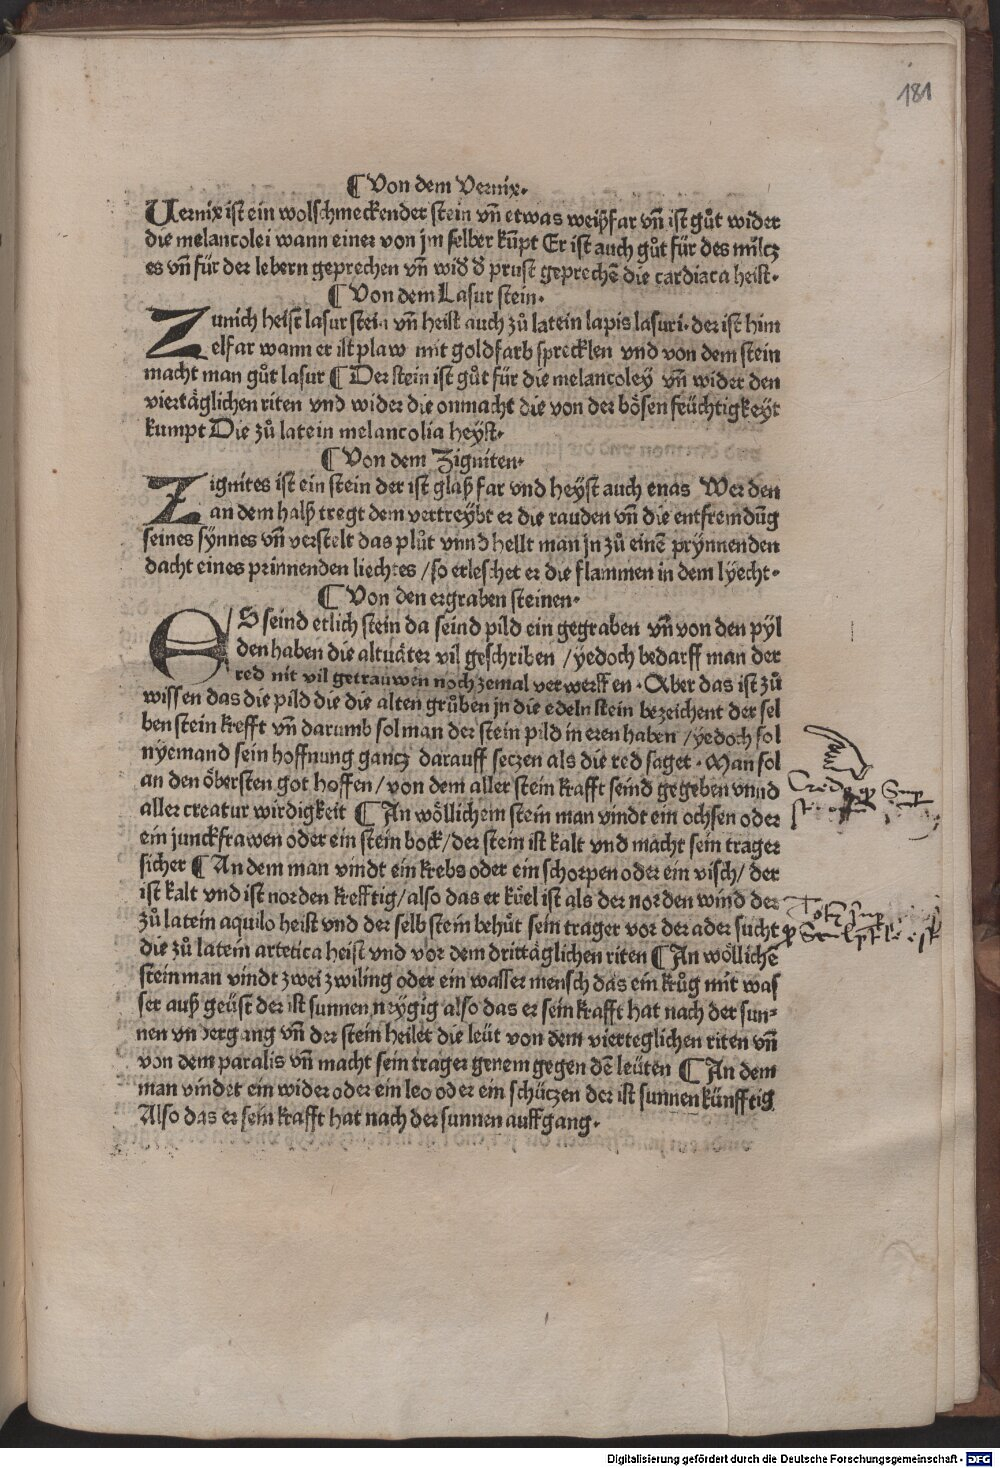 181
¶ Von dem Vernix.
Vernix ist ein wolschmeckender stein vñ etwas weißfar vñ ist gůt wider
die melancolei wann einer von jm selber kũpt Er ist auch gůt für des miltz
es vñ für der lebern geprechen vñ wid̕ d̕ prust geprechẽ die cardiaca heist.
¶ Von dem Lasur stein.
Zunich heist lasur stein vñ heist auch zů latein lapis lasuri. der ist him
elfar wann er ist plaw mit goldfarb sprecklen vnd von dem stein
macht man gůt lasur ¶ Der stein ist gůt für die melancoley vñ wider den
viertäglichen riten vnd wider die onmacht die von der bösen feüchtigkeyt
kumpt Die zů latein melancolia heyst.
¶ Von dem Zigniten.
Zignites ist ein stein der ist glaß far vnd heyst auch enas Wer den
an dem halß tregt dem vertreybt er die rauden vñ die entfremdũg
seines synnes vñ verstelt das plůt vnnd hellt man jn zů einẽ prynnenden
dacht eines prinnenden liechtes / so erleschet er die flammen in dem lyecht.
¶ Von den ergraben steinen.
ES seind etlich stein da seind pild ein gegraben vñ von den pyl
den haben die altuäter vil geschriben / yedoch bedarff man der
red nit vil getrauwen noch zemal verwerffen. Aber das ist zů
wissen das die pild die die alten grůben jn die edeln stein bezeichent der sel
ben stein krefft vñ darumb sol man der stein pild in eren haben / yedoch sol
nyemand sein hoffnung gantz darauff setzen als die red saget. Man sol
an den öbersten got hoffen / von dem aller stein krafft seind gegeben vnnd
aller creatur wirdigkeit ¶ An wöllichem stein man vindt ein ochsen oder
ein junckfrawen oder ein stein bock / der stein ist kalt vnd macht sein trager
sicher ¶ An dem man vindt ein krebs oder ein schorpen oder ein visch / der
ist kalt vnd ist norden krefftig / also das er küel ist als der norden wind der
zů latein aquilo heist vnd der selb stein behůt sein trager vor der ader sucht
die zů latein artetica heist vnd vor dem drittäglichen riten ¶ An wöllichẽ
stein man vindt zwei zwiling oder ein wasser mensch das ein krůg mit was
ser auß geüst der ist sunnen neygig also das er sein krafft hat nach der sun=
nen vndergang vñ der stein heilet die leüt von dem vierteglichen riten vñ
von dem paralis vñ macht sein trager genem gegen dẽ leüten ¶ An dem
man vindet ein wider oder ein leo oder ein schützen der ist sunnen künfftig
Also das er sein krafft hat nach der sunnen auffgang.
Digitalisierung gefördert durch die Deutsche Forschungsgemeinschaft - DFG